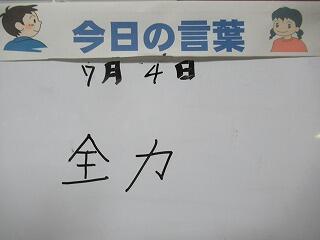 今日の言葉
7月4日
全力